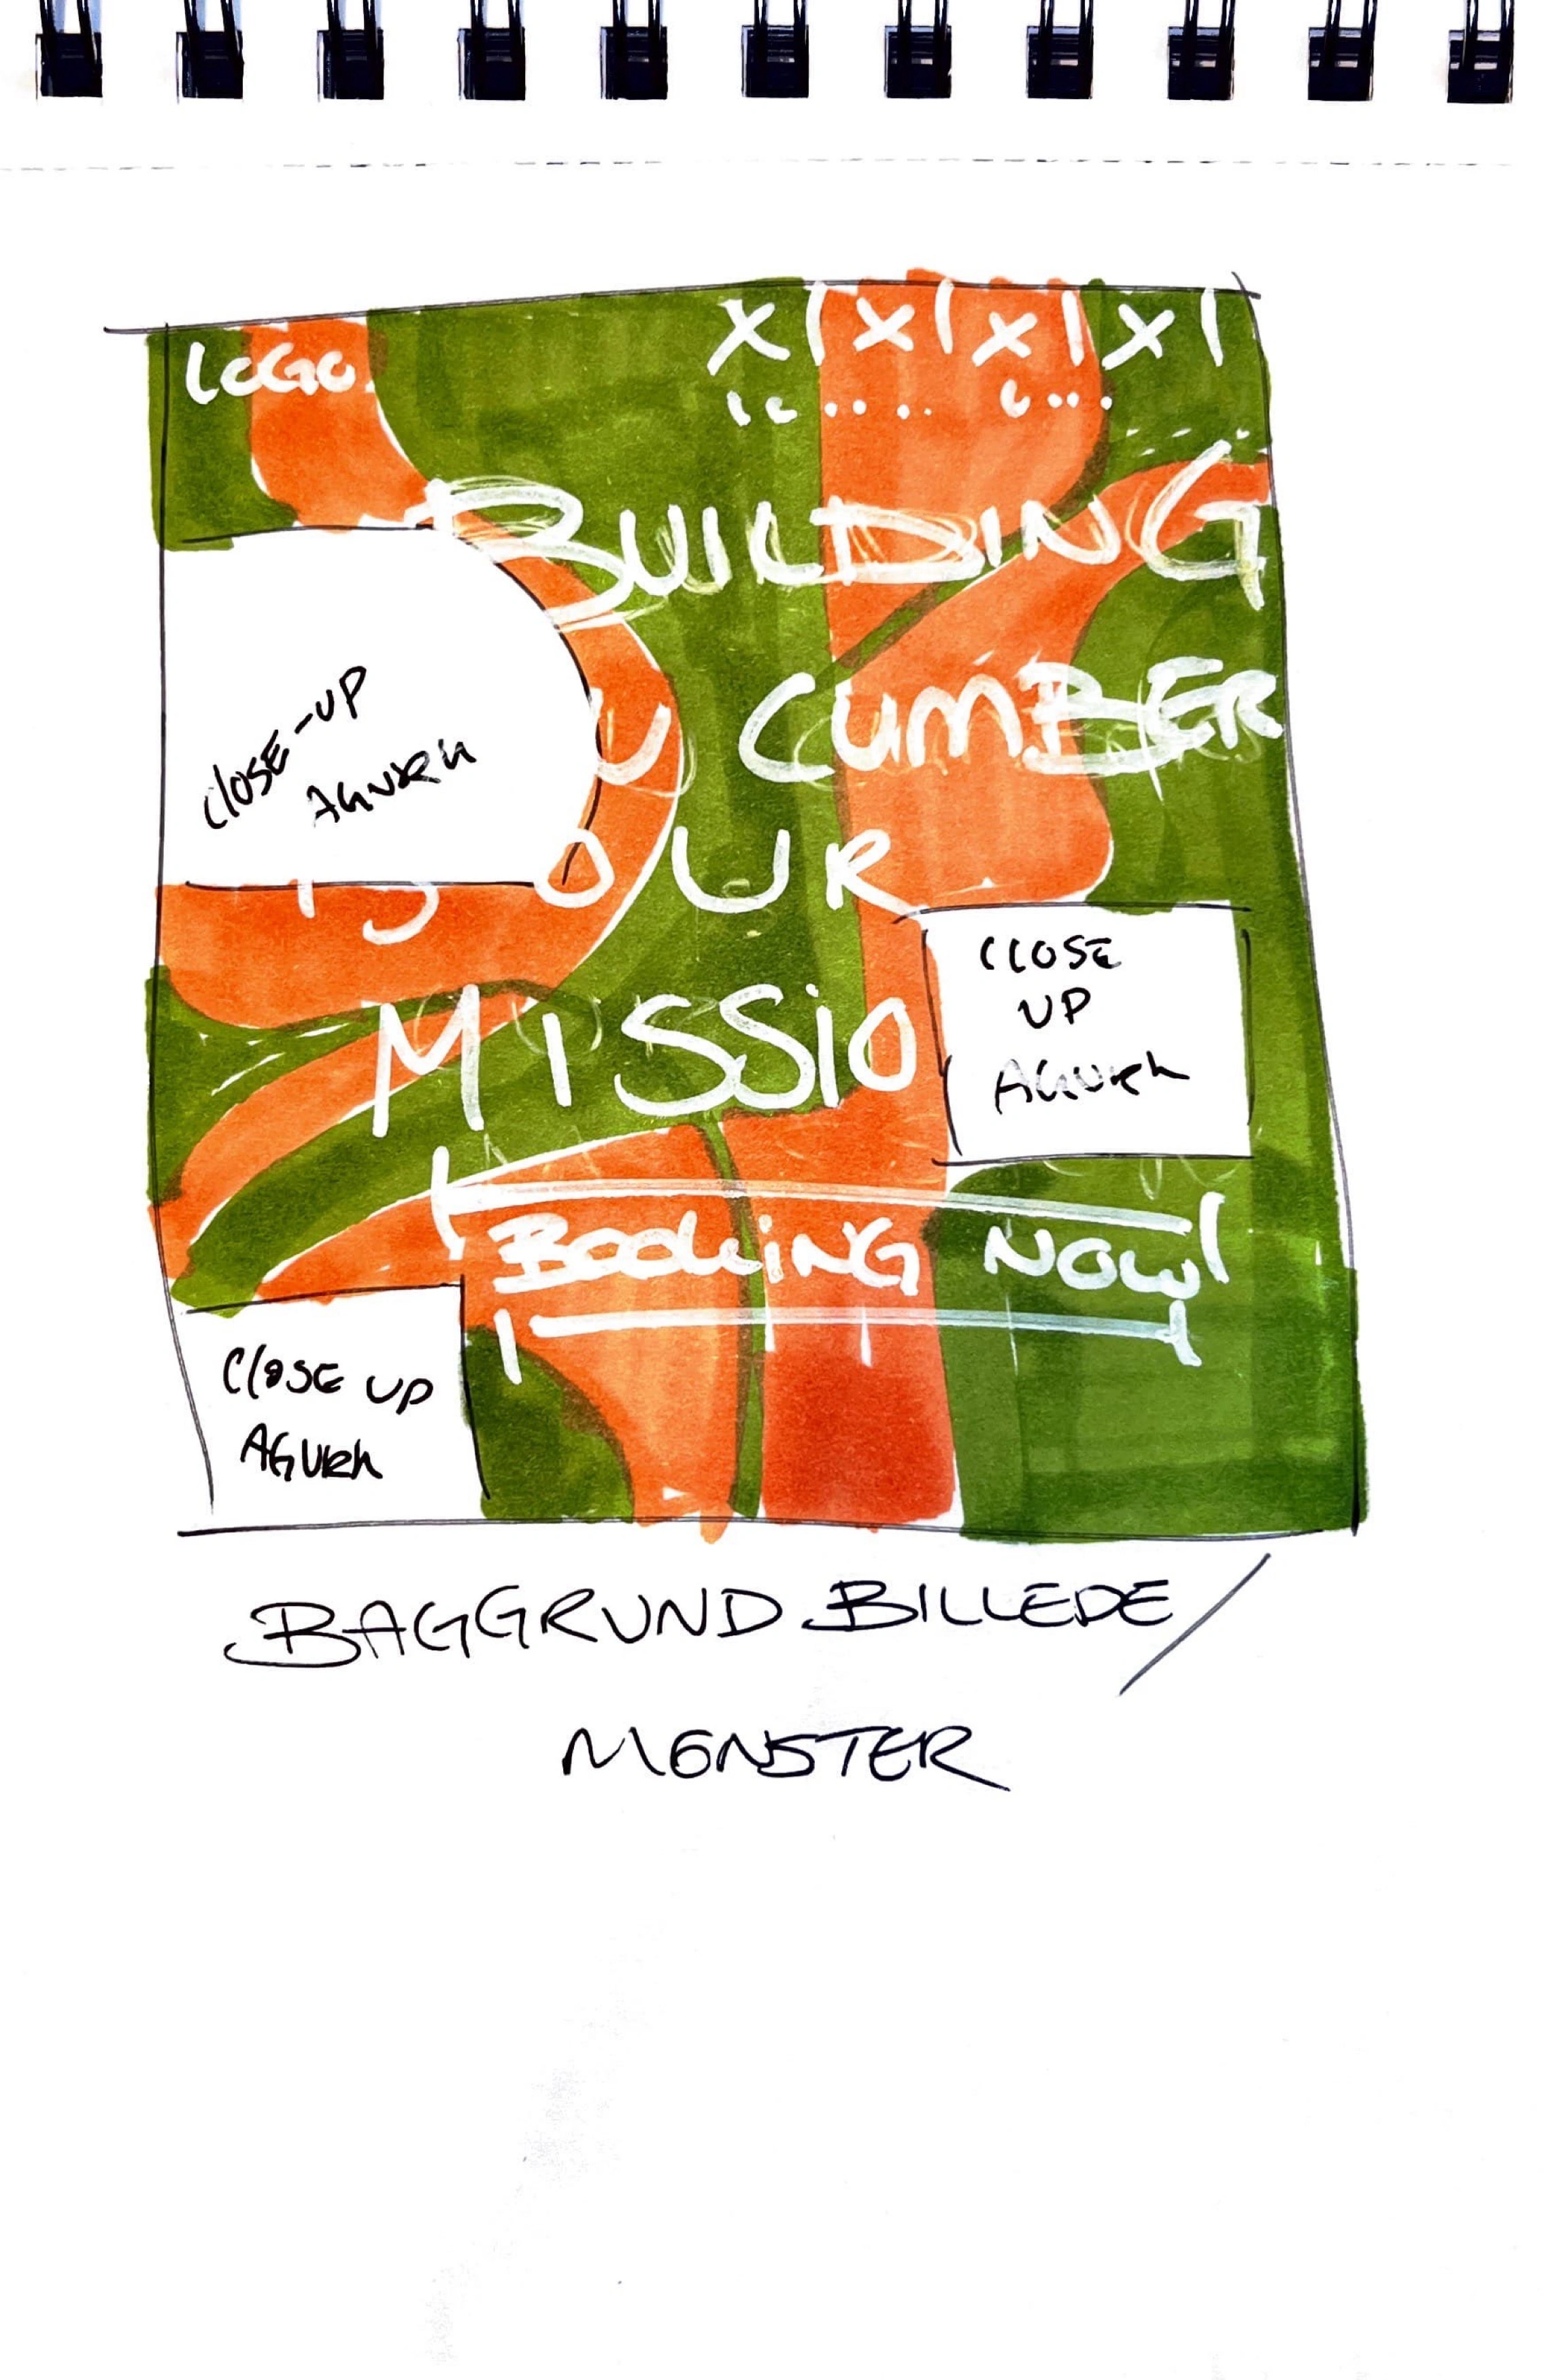 LOGO.
X | X | X | X |
BUILDING
U CUMBER
OUR
MISSIO
CLOSE-UP
AGURK
CLOSE
UP
AGURK
BOOKING NOW
CLOSE UP
AGURK
BAGGRUND BILLEDE/
MØNSTER